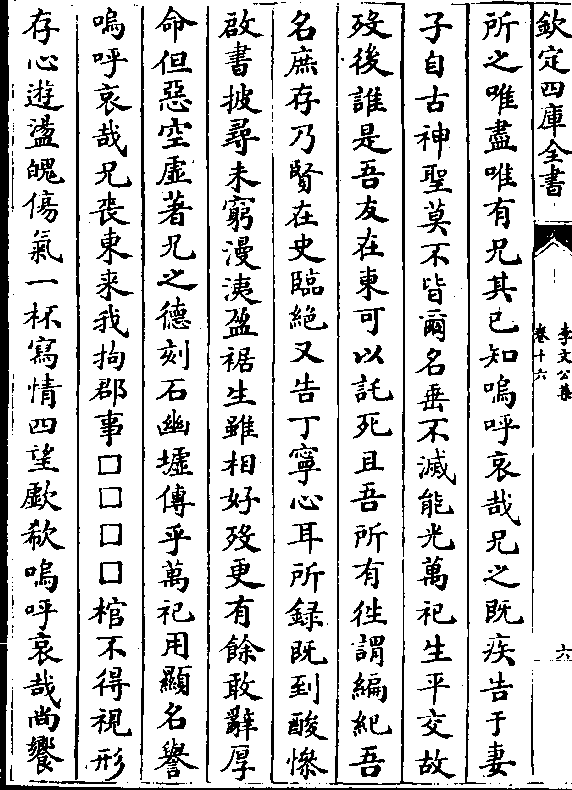 欽定四庫全書
李文公集
卷十六
六
所之唯盡唯有兄其已知嗚呼哀哉兄之既疾告于妻
子自古神聖莫不皆爾名垂不滅能光萬祀生平交故
歿後誰是吾友在東可以託死且吾所有徃謂編紀吾
名庶存乃賢在史臨絶又告丁寧心耳所録既到酸慘
啟書披尋未窮漫洟盈裾生雖相好歿更有餘敢辭厚
命但惡空虛著兄之德刻石幽墟傳乎萬祀用顯名譽
嗚呼哀哉兄喪東来我拘郡事□□□□棺不得視形
存心遊盪魄傷氣一杯寫情四望歔欷嗚呼哀哉尚饗